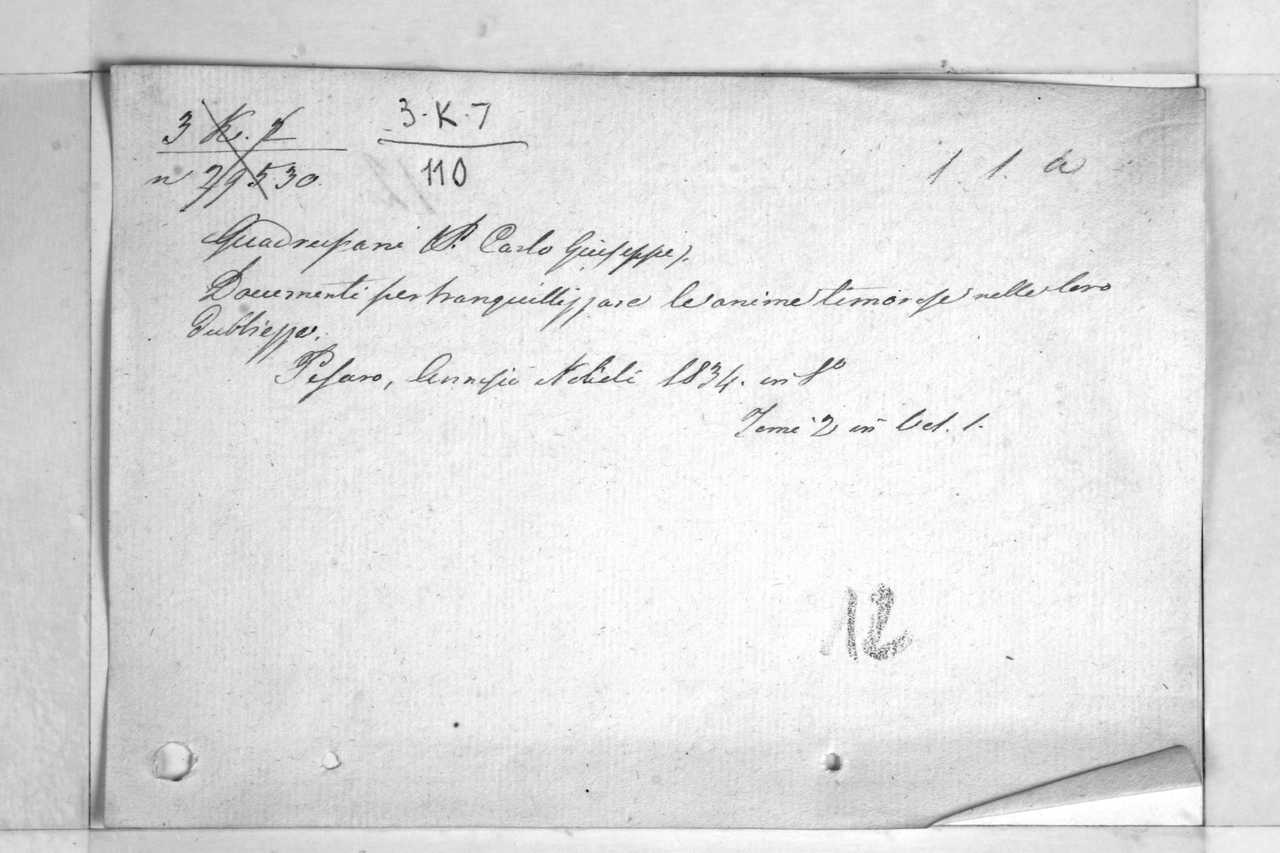 3 K. 7
n 29530
3. K. 7
110
1. 1. a
Quadrupani (P. Carlo Giuseppe).
Documenti per tranquillizzare le anime timorose nelle loro
dubbiezze.
Pesaro, Annesio Nobili 1834. in 8º
Tomi 2 in Vol. 1.
12